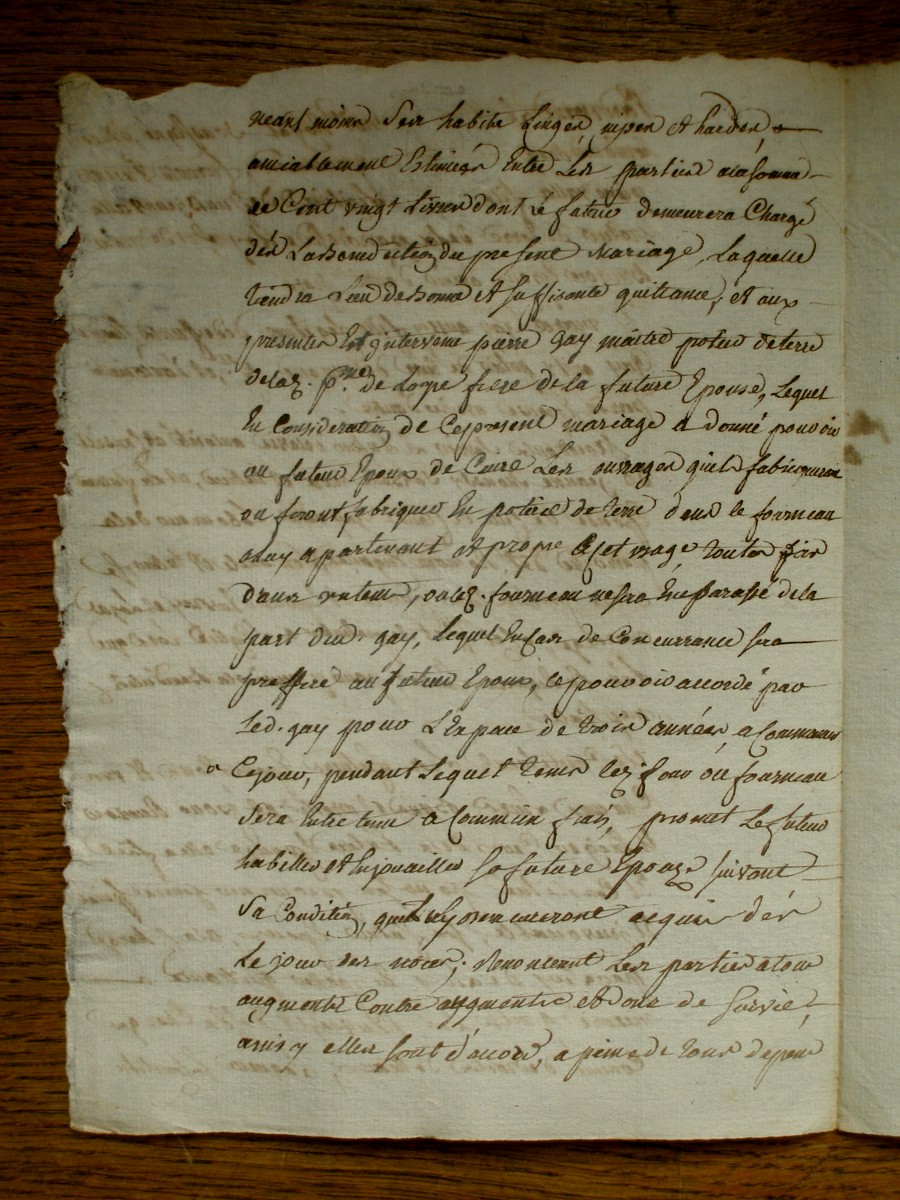 neant moins Ses habits Linges, nipes et hardes,
amiablement Estimés Entre Les parties ala somme
de Cent vingt Livres dont Le futur demeurera Chargé
dés La Benediction du present Mariage, Laquelle
tiendra Lieu de bonne et suffisante quittance; et aux
presentes Est intervenu pierre gay maitre potier de terre
de lad. p.sse de frere de La future Epouse, Lequel
En Consideration de Ce present mariage a donné pouvoir
au futur Epoux de Cuire Les ouvrages quil fabriquera
ou feront fabriquer En poterie de terre dans le fourneau
a luy apartenant et propre a Cet usage toutes fois
d'aux que led. fourneau ne sera Embarassé de la
part dud. gay, Lequel En Cas de Concurrance sera
prefferé au futur Epoux, ce pouvoir accordé par
Led. gay pour L'Espace de trois années, a Commancer
Ce jour, pendant Lequel tems led. four ou fourneau
Sera Entretenu a Commun frais, promet Le futur
habiller et Enjouailler sa future Epouze suivant
Sa Condition, quil seront acquis dés
Le jour des noces; Renoncent Les parties a tout
augment Contre augment et dons de survie,
ainsy elles sont d'accord, a peine de tous depens